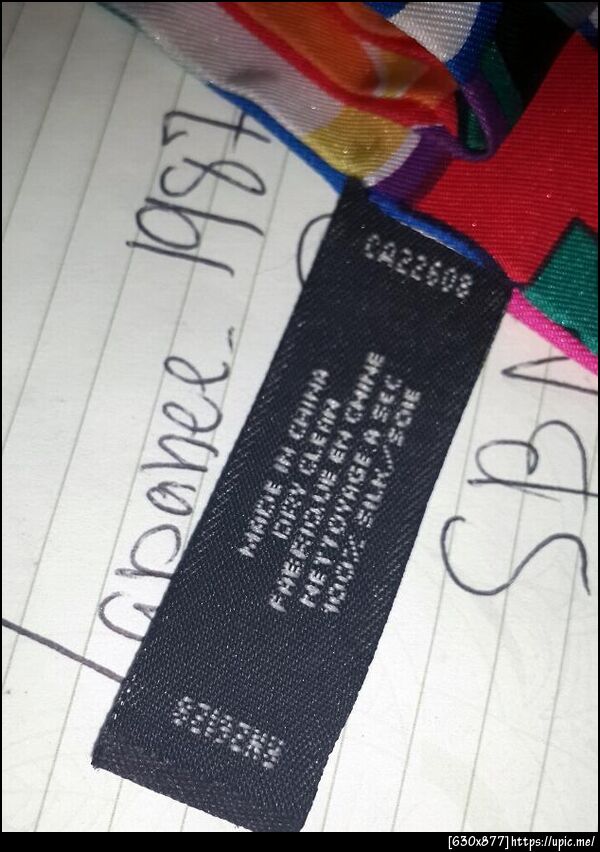 CA22608
MADE IN CHINA
DRY CLEAN
FABRIQUE EN CHINE
NETTOYAGE A SEC
100% SILK/SOIE
1987
SBN
[630x877]https://upic.me/